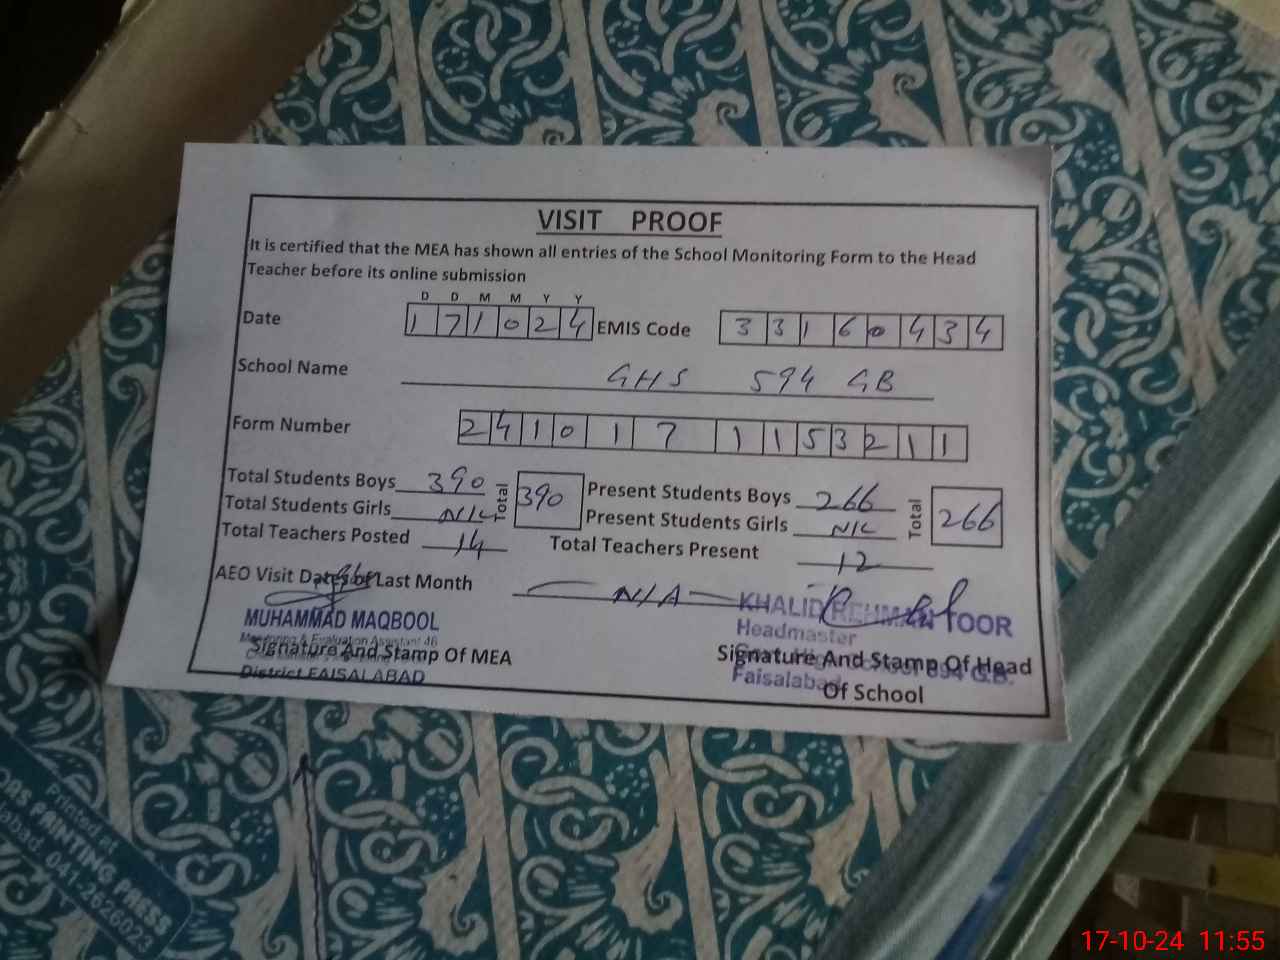 VISIT PROOF
It is certified that the MEA has shown all entries of the School Monitoring Form to the Head
Teacher before its online submission
D D M M Y Y
Date 1 7 1 0 2 4 EMIS Code 3 3 1 6 0 4 3 4
School Name GHS 594 GB
Form Number 2 4 1 0 1 7 1 1 5 3 2 1 1
Total Students Boys 390 Total 390 Present Students Boys 266 Total 266
Total Students Girls NIL Present Students Girls NIL
Total Teachers Posted 14 Total Teachers Present 12
AEO Visit Dates of Last Month N/A
MUHAMMAD MAQBOOL
Monitoring & Evaluation Assistant 46
Signature And Stamp Of MEA
District FAISALABAD
KHALID REHMAN TOOR
Headmaster
Signature And Stamp Of Head
Faisalabad
Of School
Printed at
PRINTING PRESS
041-2626023
17-10-24 11:55